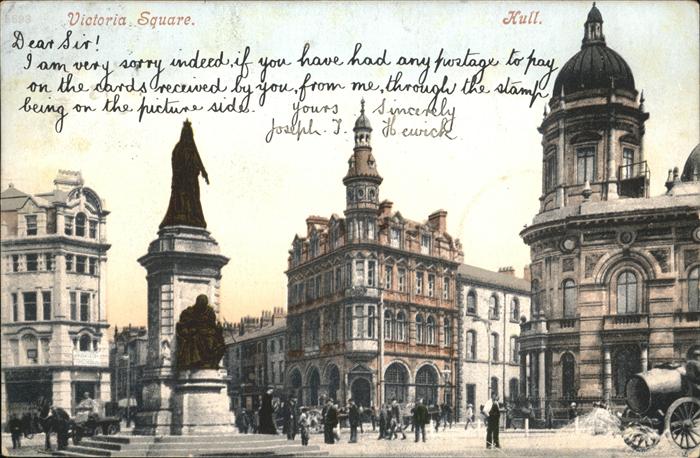 5693
Victoria Square.
Hull.
Dear Sir!
I am very sorry indeed, if you have had any postage to pay
on the cards received by you, from me, through the stamp
being on the picture side. Yours Sincerely
Joseph. T. Hewick